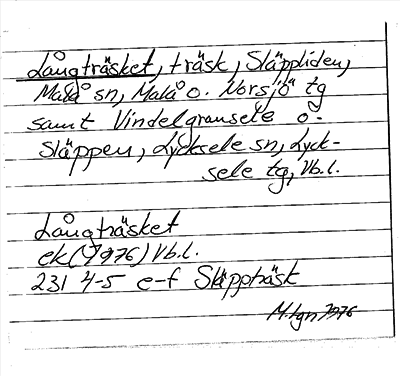 Långträsket, träsk, Släppliden,
Malå sn, Malå o. Norsjö tg
samt Vindelgransele o.
Släppen, Lycksele sn, Lyck-
sele tg, Vb.l.
Långträsket
ek (1976) Vb.l.
231 4-5 e-f Släppträsk
1976